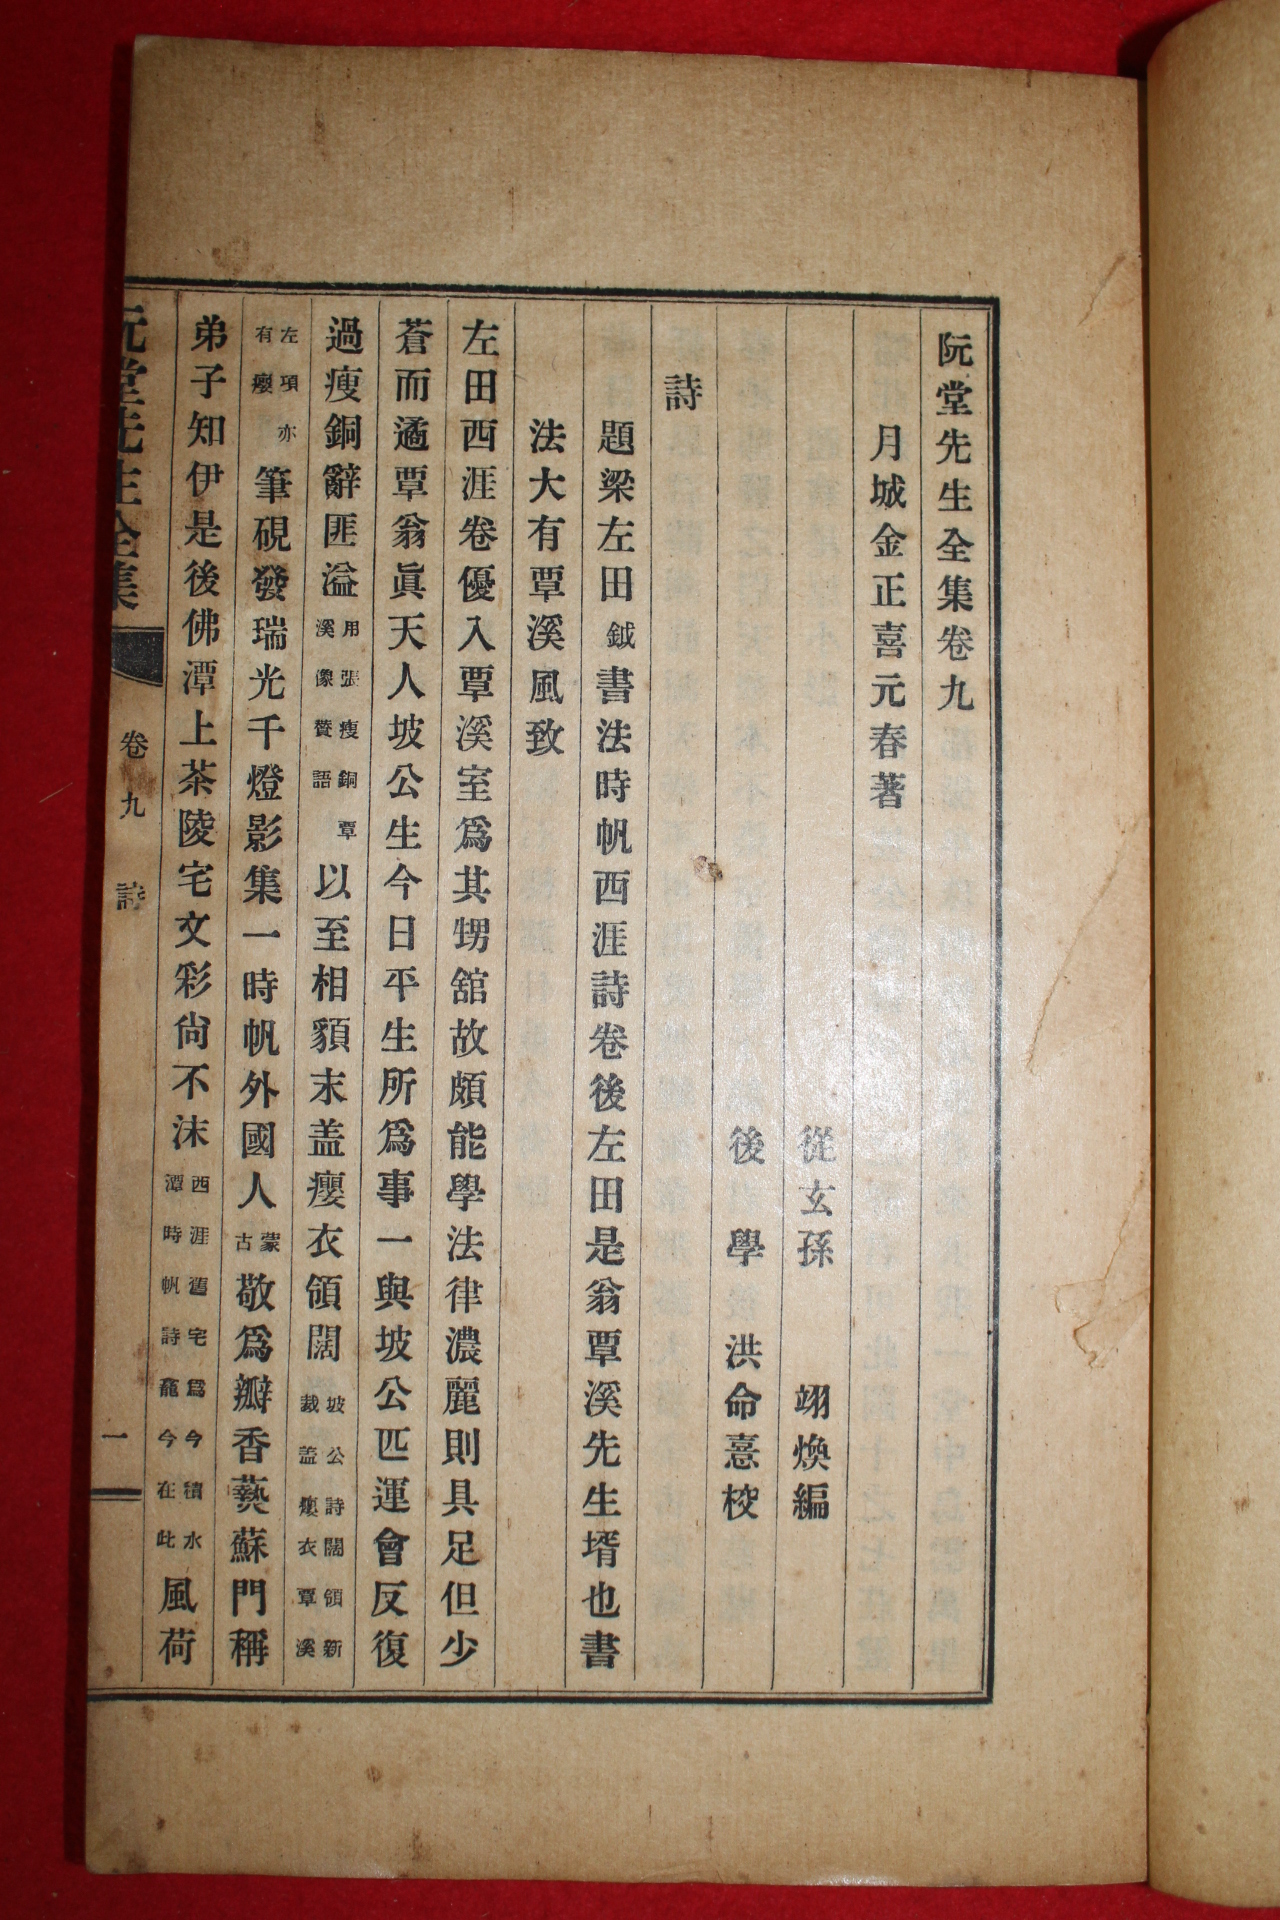 阮堂先生全集卷九
月城金正喜元春著
從玄孫 翊煥編
後學 洪命憙校
詩
題梁左田鉞書法時帆西涯詩卷後左田是翁覃溪先生壻也書
法大有覃溪風致
左田西涯卷優入覃溪室爲其甥舘故頗能學法律濃麗則具足但少
蒼而遹覃翁眞天人坡公生今日平生所爲事一與坡公匹運會反復
過瘦銅辭匪溢用張瘦銅覃溪像贊語以至相貌末盖癭衣領闊坡公詩闊領新裁盖癭衣覃溪
左項亦有癭筆硯發瑞光千燈影集一時帆外國人蒙古敬爲瓣香蓺蘇門稱
弟子知伊是後佛潭上茶陵宅文彩尙不沫西涯舊宅爲今積水潭時帆詩龕今在此風荷
阮堂先生全集 卷九 詩 一